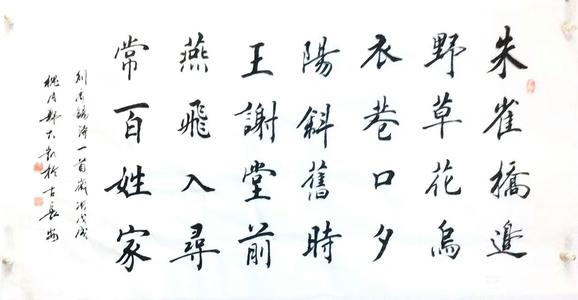 朱雀橋邊
野草花烏
衣巷口夕
陽斜舊時
王謝堂前
燕飛入尋
常百姓家
劉禹錫詩一首歲次戊戌
槐月於古長安